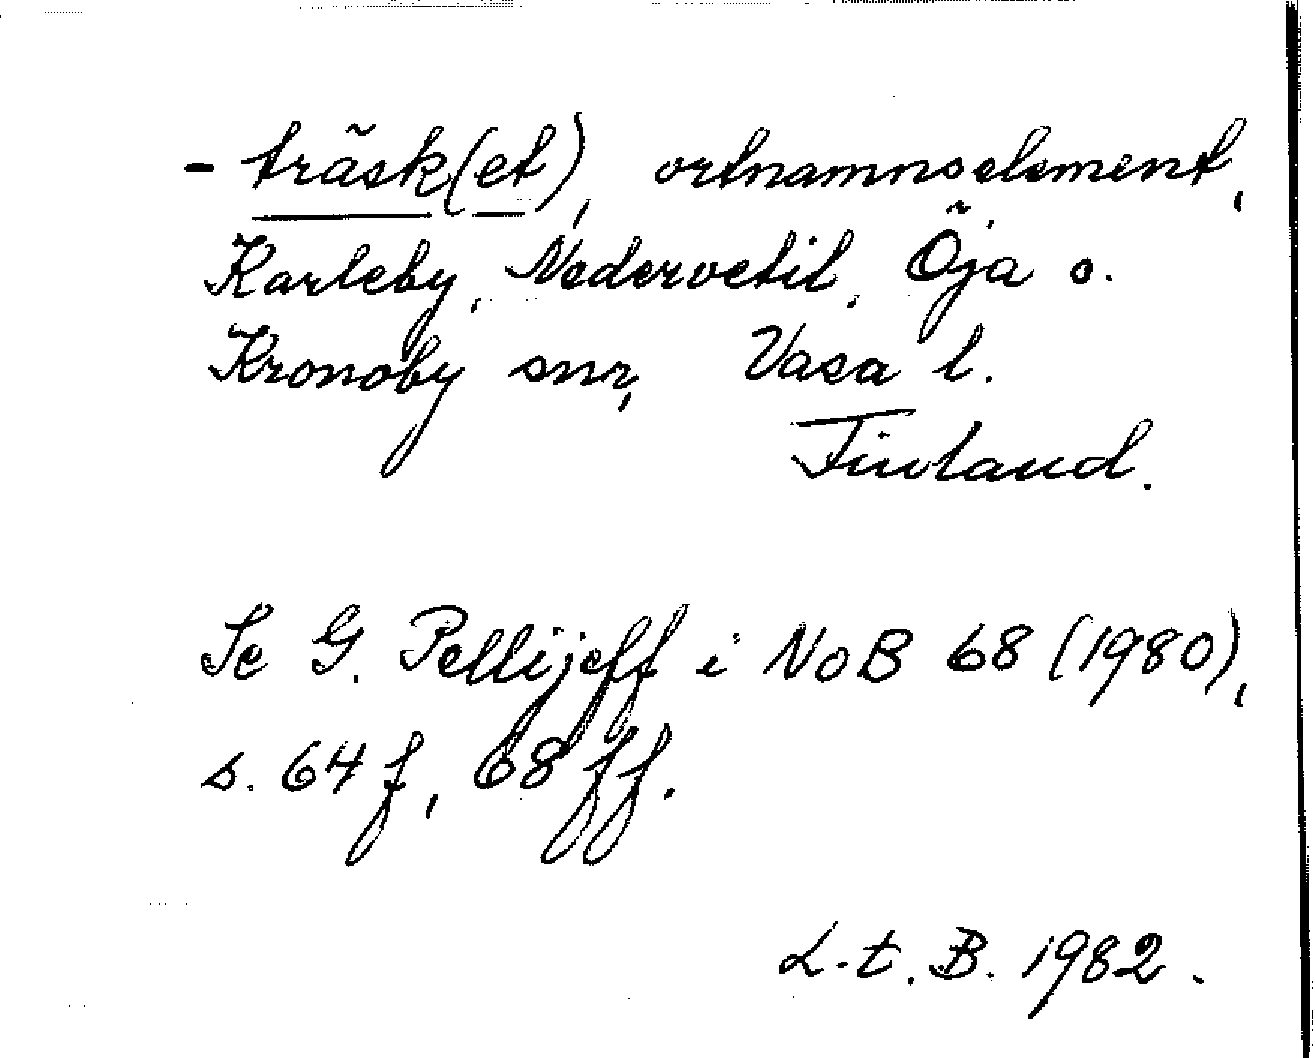 - träsk(et), ortnamnselement,
Karleby, Nedervetil, Öja o.
Kronoby snr, Vasa l.
Finland.
Se G. Pellijeff i NoB 68 (1980),
s. 64 f, 68 ff.
L.t.B. 1982.